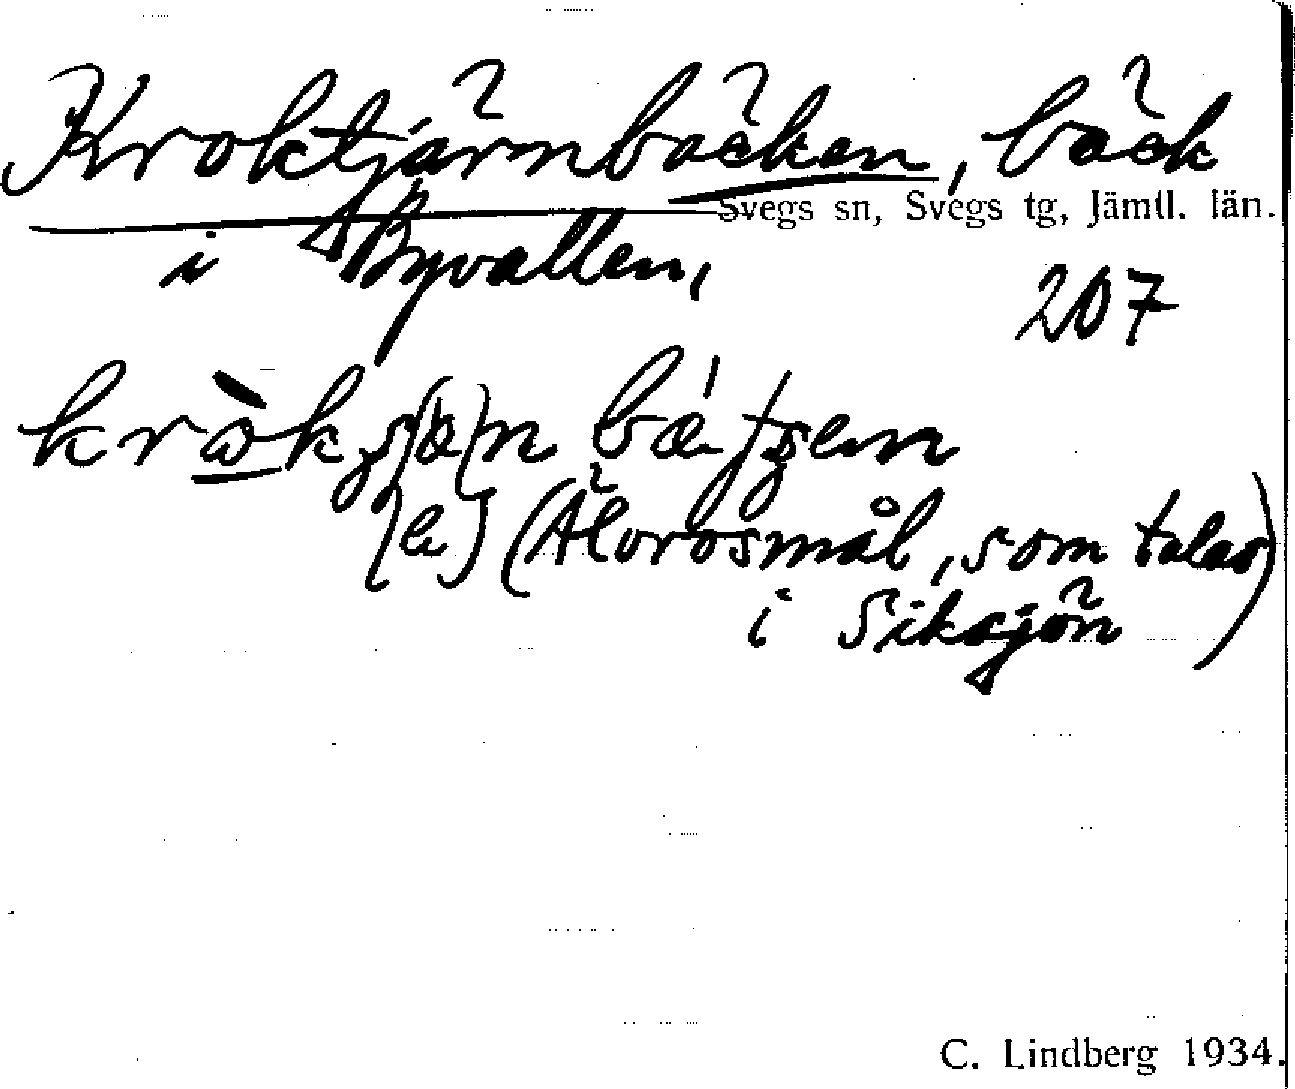 Kroktjärnbäcken, bäck
Svegs sn, Svegs tg, Jämtl. län.
i Byvallen,
207
(Älvrosmål, som talas
i Siksjön)
C. Lindberg 1934.